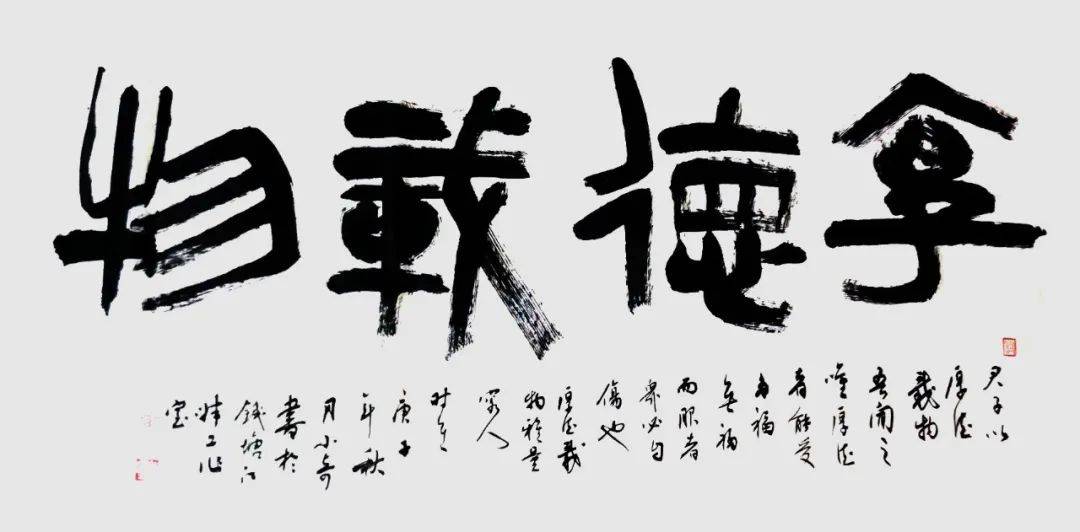 厚德載物
君子以
厚德
載物
吾聞之
唯厚德
者能受
多福
無福
而服者
衆必自
傷也
厚德載
物雅量
容人
時在
庚子
年秋
月小奇
書於
錢塘江
畔工作
室